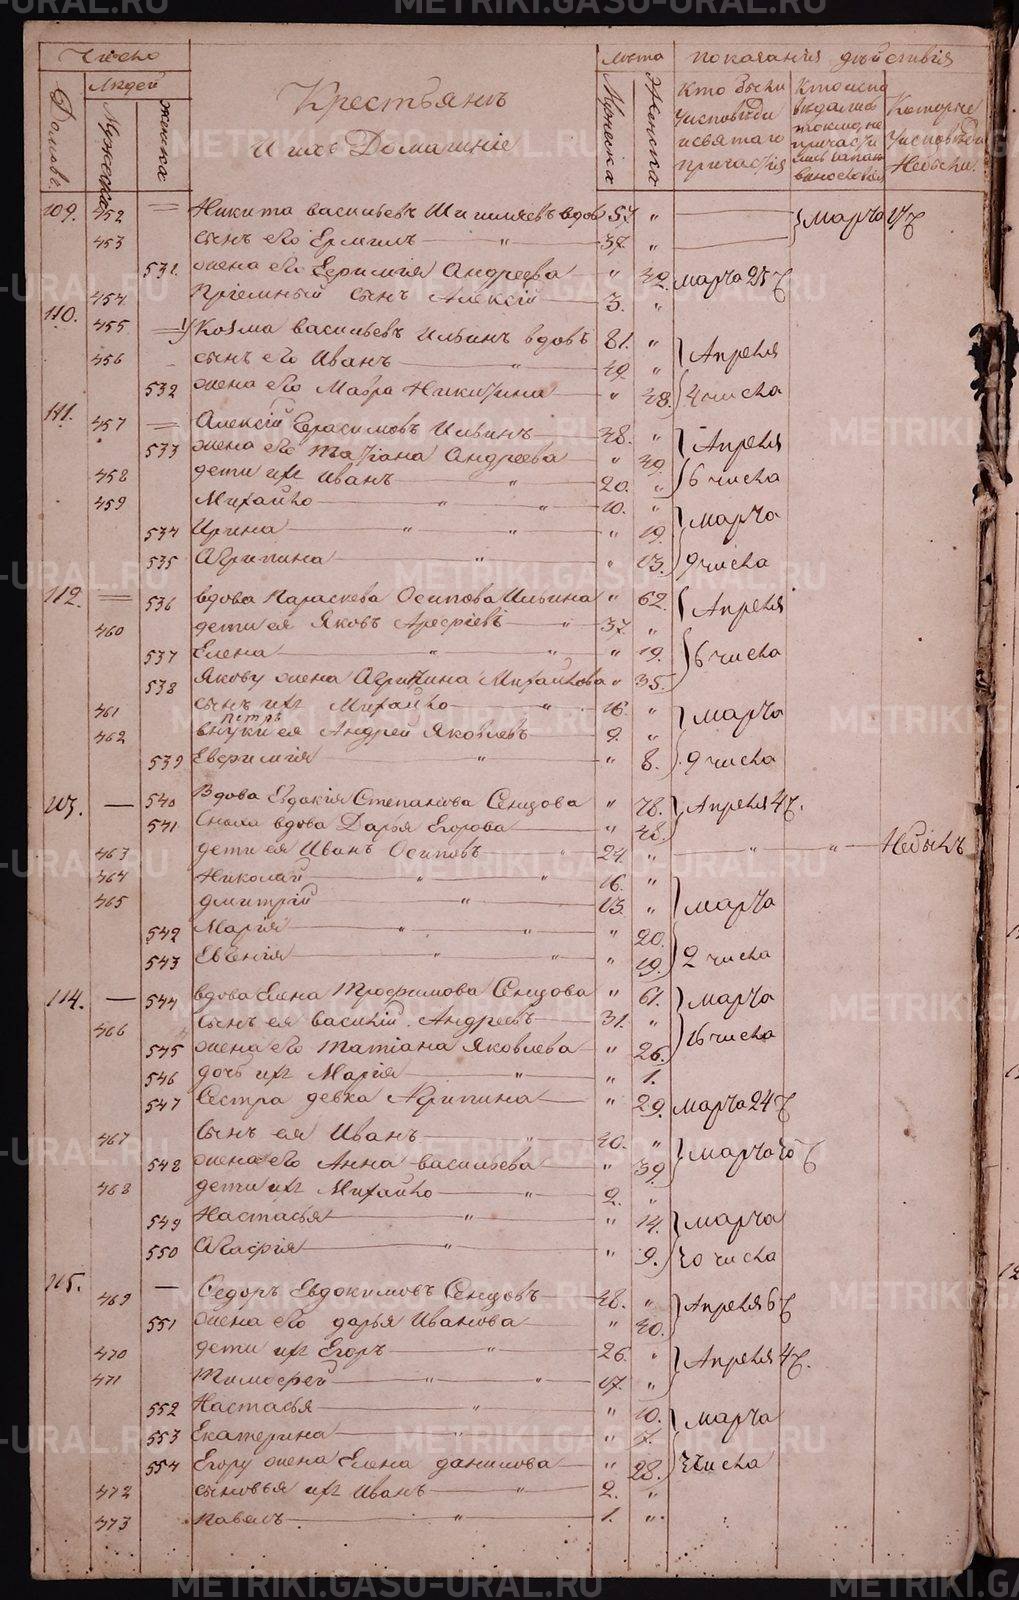 Число
Людей
лѣта
показанія дѣйствія
Домовъ.
Мужеска
женска
Крестьянъ
И ихъ Домашніе
Мужеска
Женска
кто были
у исповѣди
и святаго
причастія
Которые
у исповѣди
не были.
109. 452 Никита васильевъ вдов 57 " Марта 17 ч
453 сынъ его Ермилъ 37. "
531. жена его Ефимія Андреева " 42. марта 25 ч
454 Пріемный сынъ Алексій 3. "
110. 455 1) Козма васильевъ Ильинъ вдовъ 81. " Апреля
456 сынъ его Иванъ " 49. "
532 жена его Мавра Никитина " 48. 4 числа
111. 457 Алексій Герасимовъ Ильинъ 48. " Апреля
533 жена его Татіана Андреева " 49.
458 дети ихъ Иванъ " 20. " 6 числа
459 Михайло " " 10. "
534 Ирина " " " 19. марта
535 Агрипина " " 13. 9 числа
112. 536 вдова Параскева Осипова Ильина " 62. Апреля
460 дети ея Яковъ Арефіевъ " 37. "
537 Елена " " " 19. 6 числа
538 Якову жена Агрипина Михайлова " 35.
461 сынъ ихъ Михайло " 16. " марта
петръ
462 внуки ея Андрей Яковлевъ 9. "
539 Евфимія " " 8. 9 числа
113. 540 Вдова Евдокія Степанова Сенцова " 78. Апреля 4 ч.
541 Сноха вдова Дарья Егорова " 48.
463 дети ея Иванъ Осиповъ " 24. " " " Небылъ
464 Николай " " 16. "
465 дмитрій " 13. " марта
542 Марія " " " 20.
543 Евгенія " " " 19. 2 числа
114. 544 вдова Елена Трофимова Сенцова " 61. марта
466 Сынъ ея василій Андреевъ 31. " 16 числа
545 жена его татіана Яковлева " 26.
546 дочь ихъ Марія " " 1.
547 Сестра девка Агрипина " 29. марта 24 ч
467 Сынъ ея Иванъ " 40. "
548 жена его Анна васильева " 39. марта 20 ч
468 дети ихъ Михайло " 2. "
549 Настасья " " 14. марта
550 Агафія " " 9. 20 числа
115. 469 Федоръ Евдокимовъ Сенцовъ 48. " Апреля 6 ч
551 жена его дарья Иванова " 40.
470 дети ихъ Егоръ " 26. " Апреля 4 ч.
471 Тимофей " " 17. "
552 Настасья " " 10. марта
553 Екатерина " " 7.
554 Егору жена Елена данилова " 28. числа
472 сыновья ихъ Иванъ " 2. "
473 павелъ " 1. "
METRIKI.GASO-URAL.RU